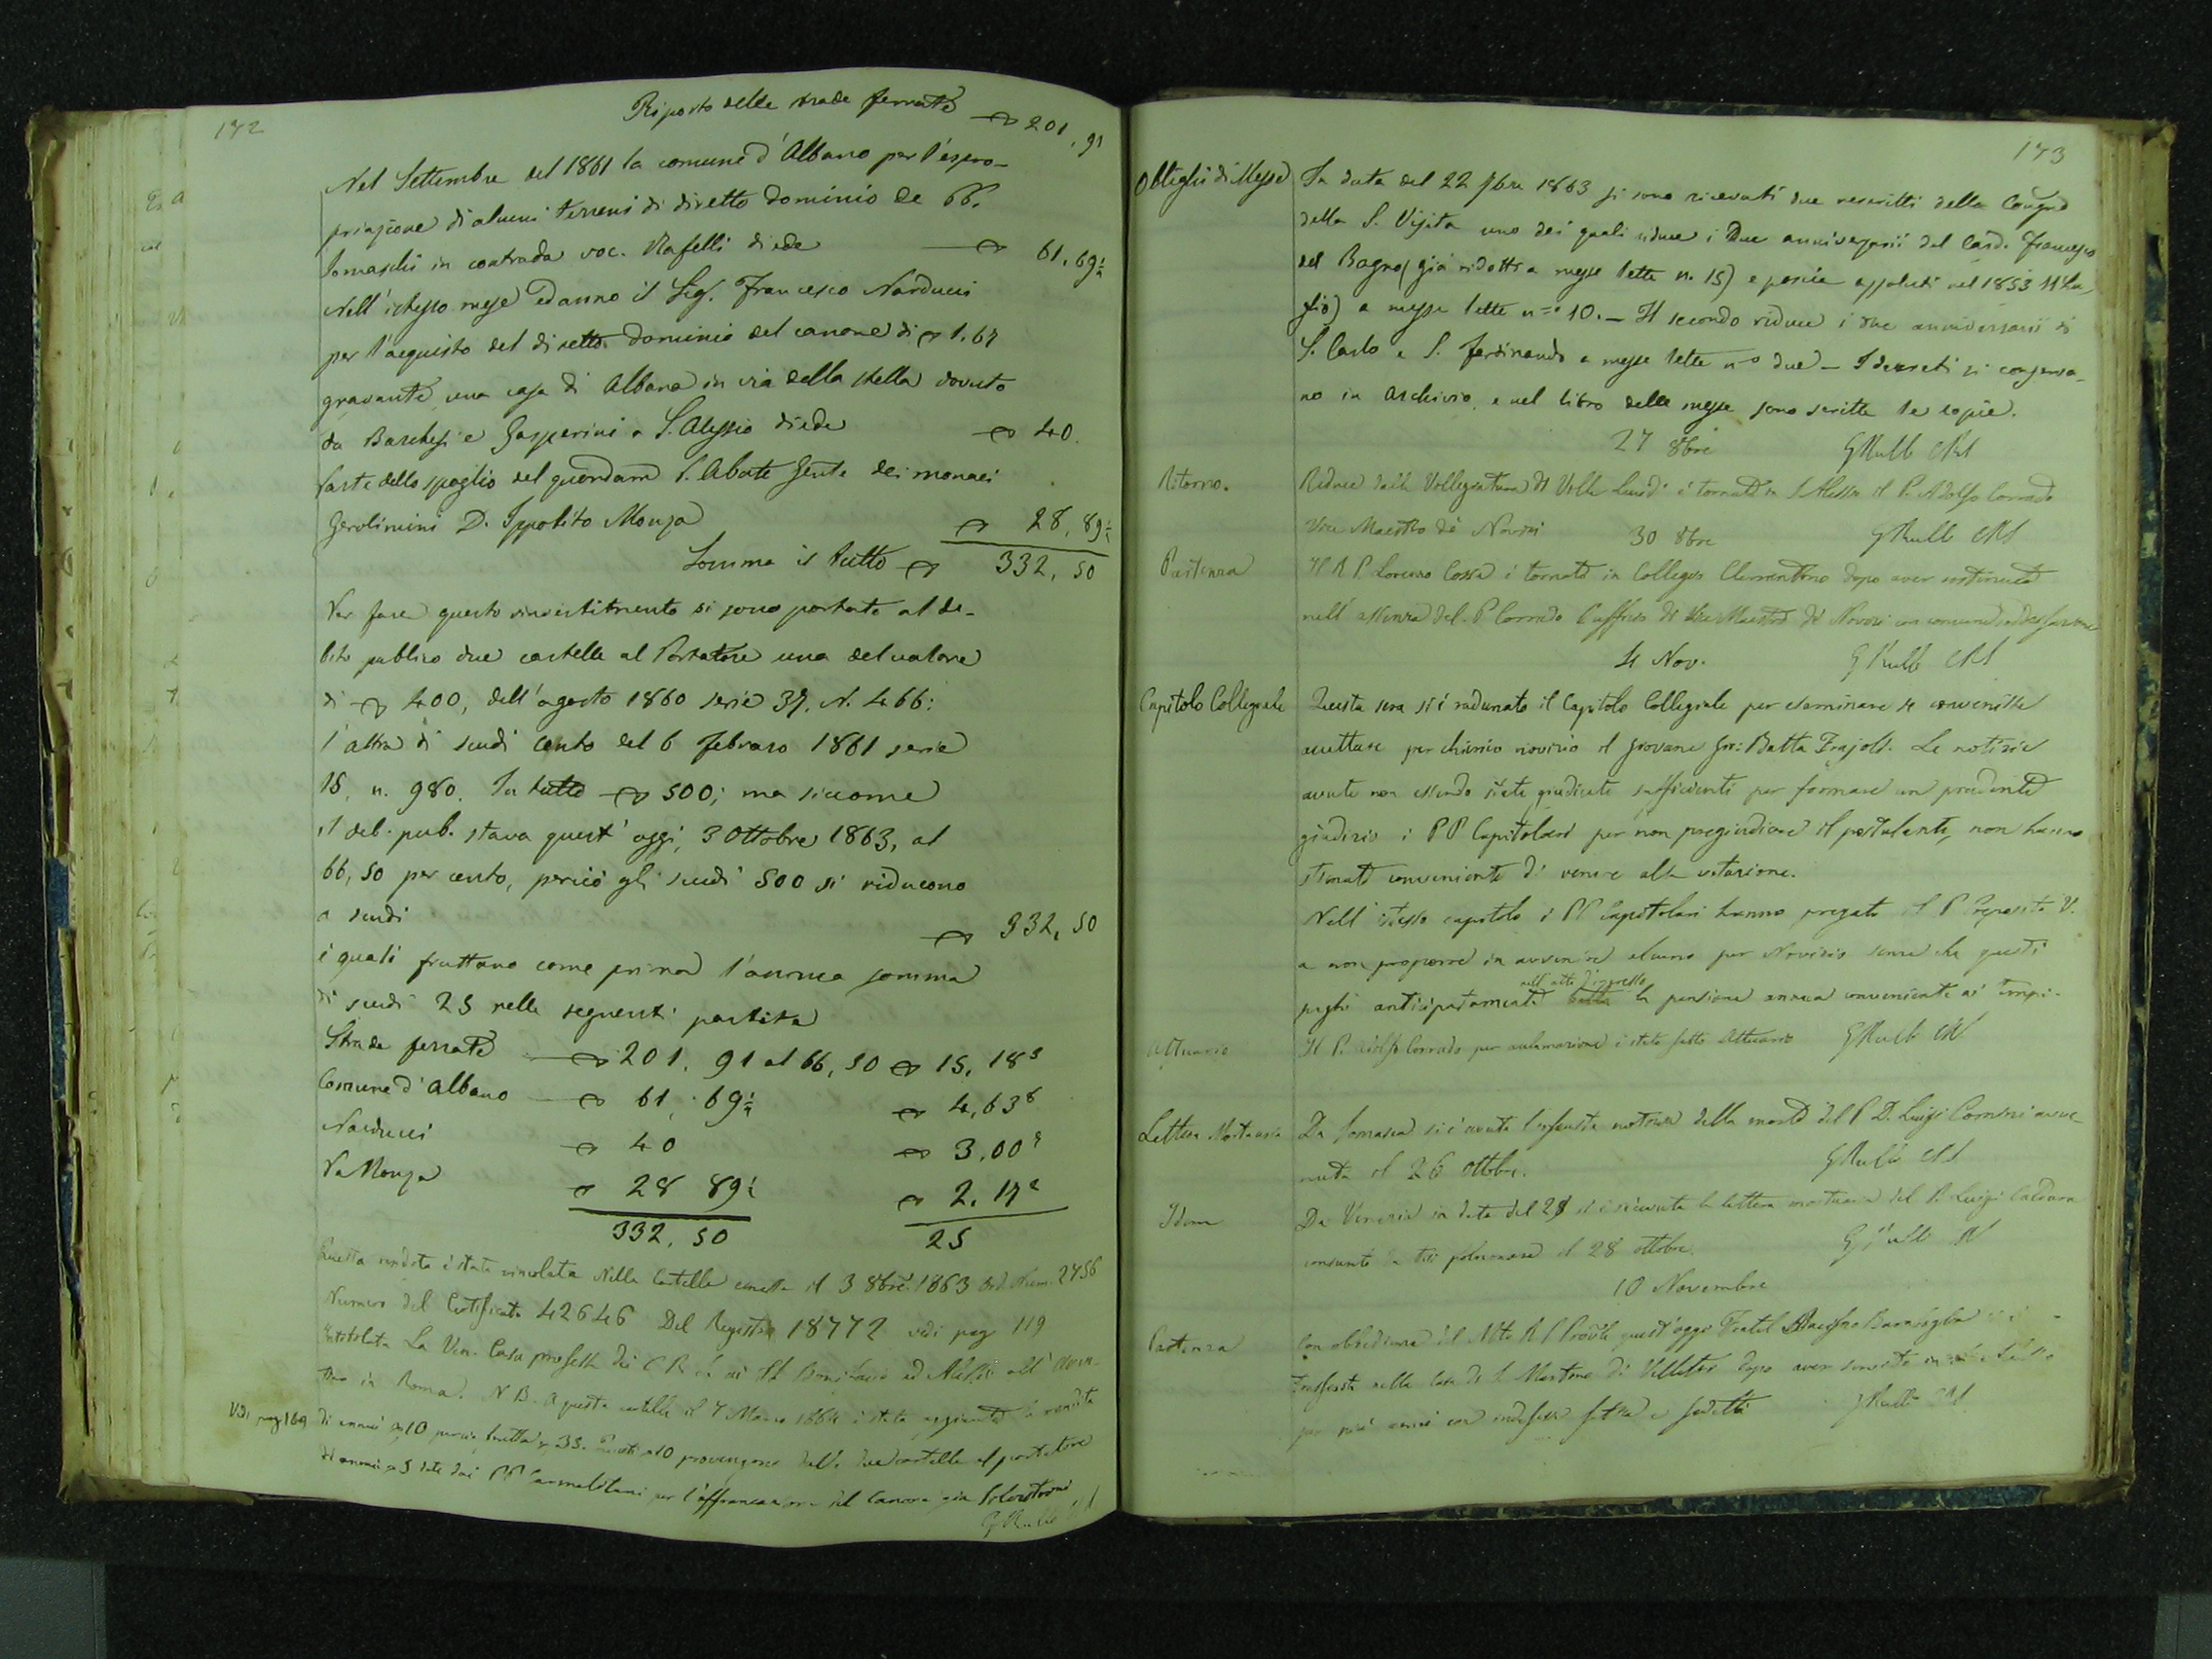 172
Riporto delle strade ferrate 201,91
Nel Settembre del 1861 la comune d'Albano per l'espro-
priazione di alcuni terreni di diretto dominio de PP.
Somaschi in contrada voc. diede 61,69½
Nell'istesso mese ed anno il Sig. Francesco Narducci
per l'acquisto del diretto dominio del canone di 1.67
gravante una casa di Albano in via della stella dovuto
da Barchesi e Gasperini a S. Alessio diede 40.
Parte dello spoglio del quondam P. Abate Gente dei monaci
Gerolimini D. Ippolito Monza 28,89½
Somma il tutto 332,50
Per fare questo rinvestimento si sono portate al de-
bito publico due cartelle al Portatore una del valore
di 400, dell'agosto 1860 serie 37, N. 466:
l'altra di scudi cento del 6 febraro 1861 serie
18, n. 980. In tutto 500; ma siccome
il deb. pub. stava quest'oggi, 3 Ottobre 1863, al
66,50 per cento, perciò gli scudi 500 si riducono
a scudi 332,50
i quali fruttano come prima l'annua somma
di scudi 25 nelle seguenti partite
Strade ferrate 201,91 al 66,50 15,18³
Comune d'Albano 61,69½ 4,63⁶
Narducci 40 3,00⁹
Pa Monza 28 89½ 2.17²
332,50 25
Questa rendita è stata vincolata Nella Cartella emessa il 3 8bre 1863 Ord. Num. 2756
Numero del Certificato 42646 Del Registro 18772 vedi pag 119
Intitolata La Ven. Casa professa dei C R S ai SS Bonifacio ed Alessio all'Aven-
tino in Roma. N B. A questa cartella il 7 Marzo 1864 è stata aggiunta la rendita
Vedi pag 169 di annui 10 perciò frutta 35. Questi 10 provengono dalle due cartelle al portatore
di annui 5 date dai PP Carmelitani per l'affrancazione del Canone già
G Rulli
173
Obblighi di Messe In data del 22 7bre 1863 si sono ricevuti due rescritti della Congne
della S. Visita uno dei quali riduce i Due anniversarii del Card. Francesco
del Bagno (già ridotti a messe lette n. 15) e poscia assoluti nel 1853 11 Lu-
glio) a messe lette n° 10. — Il secondo riduce i due anniversarii di
S. Carlo e S. Ferdinando a messe lette n° due — I decreti si conserva-
no in Archivio, e nel libro delle messe sono scritte le copie.
27 8bre G Rulli CRS
Ritorno. Reduce dalla Villeggiatura di Villa è tornato in S Alessio il P. Adolfo Corrado
Vice Maestro dei Novizi 30 8bre G Rulli CRS
Partenza Il R P. Lorenzo Cossa è tornato in Collegio Clementino dopo aver sostenuto
nell'assenza del P Corrado l'uffizio di Vice Maestro di Novizi con comune sodisfazione
4 Nov. G Rulli CRS
Capitolo Collegiale Questa sera si è radunato il Capitolo Collegiale per esaminare se convenisse
accettare per chierico novizio il giovane Gio: Batta. Le notizie
avute non essendo state giudicate sufficienti per formare un prudente
giudizio i PP Capitolari per non pregiudicare il postulante, non hanno
stimato conveniente di venire alla votazione.
Nell'istesso capitolo i PP Capitolari hanno pregato il P Preposito V.
a non proporre in avvenire alcuno per Novizio senza che questi
nell'atto d'ingresso
paghi anticipatamente la pensione annua conveniente ai tempi.
Attuario Il P. Adolfo Corrado per acclamazione è stato fatto Attuario G Rulli CRS
Lettera Mortuaria Da Somasca si è avuta l'infausta notizia della morte del P D. Luigi Comini avve-
nuta il 26 Ottobre. G Rulli CRS
Idem Da Venezia in data del 29 si è ricevuta la lettera mortuaria del P. Luigi Caldara
consunto da tisi polmonare il 28 ottobre. G Rulli CRS
10 Novembre
Partenza Con obbedienza del Mto R P Provle quest'oggi Fratel si è
trasferito nella Casa di S Martino di Velletri dopo aver servito in
per anni con indefessa fatica e fedeltà G Rulli CRS